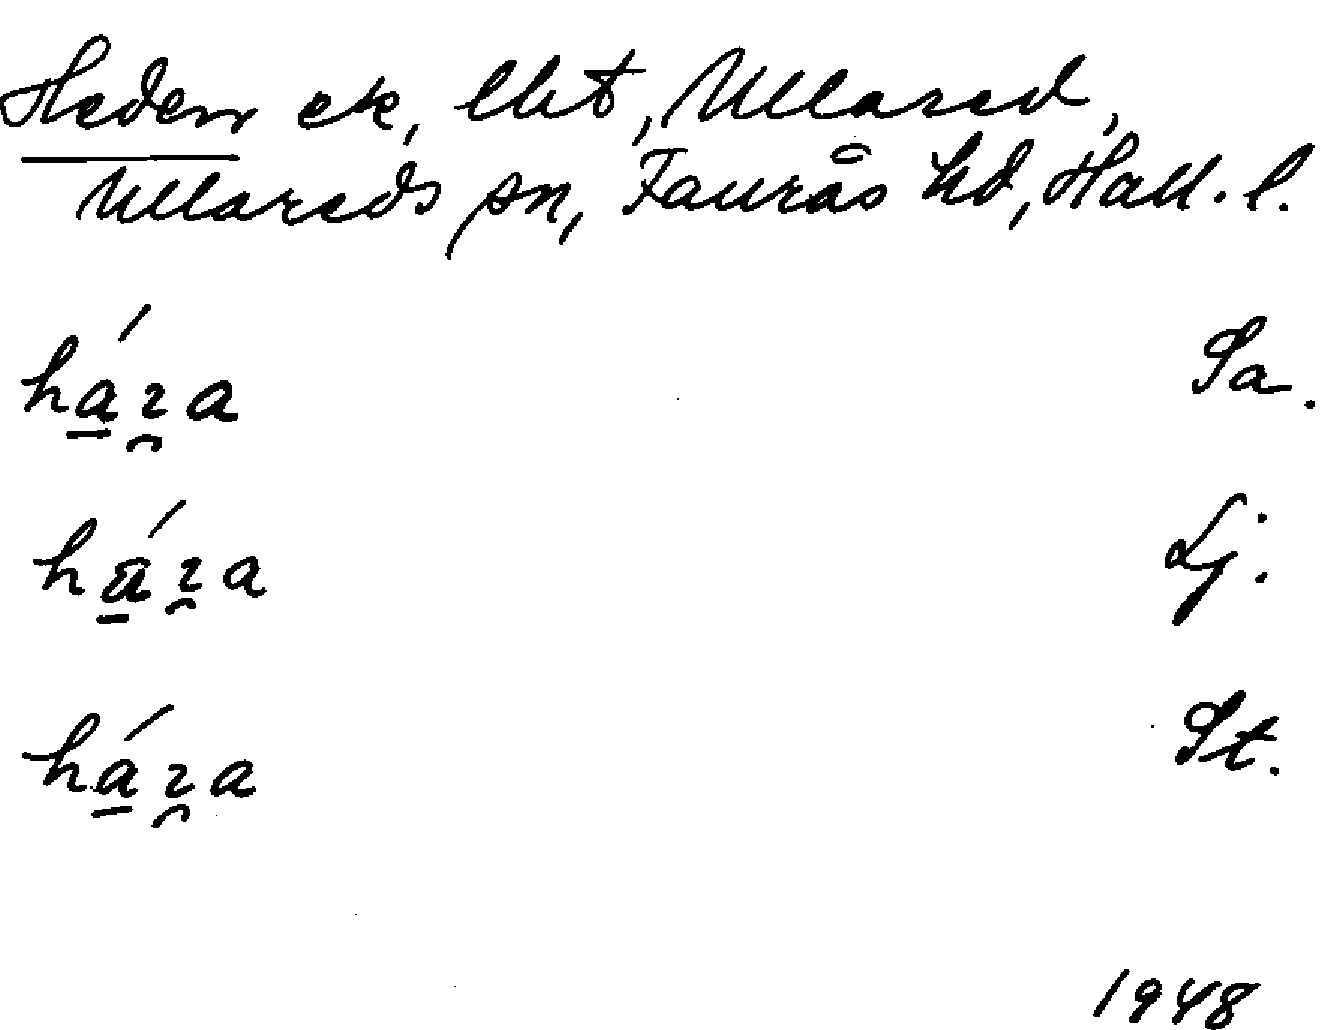 Heden ek, lht, Ullared,
Ullareds sn, Faurås hd, Hall. l.
há̱ɀ̯a Sa.
há̱ɀ̯a Lj.
há̱ɀ̯a St.
1948